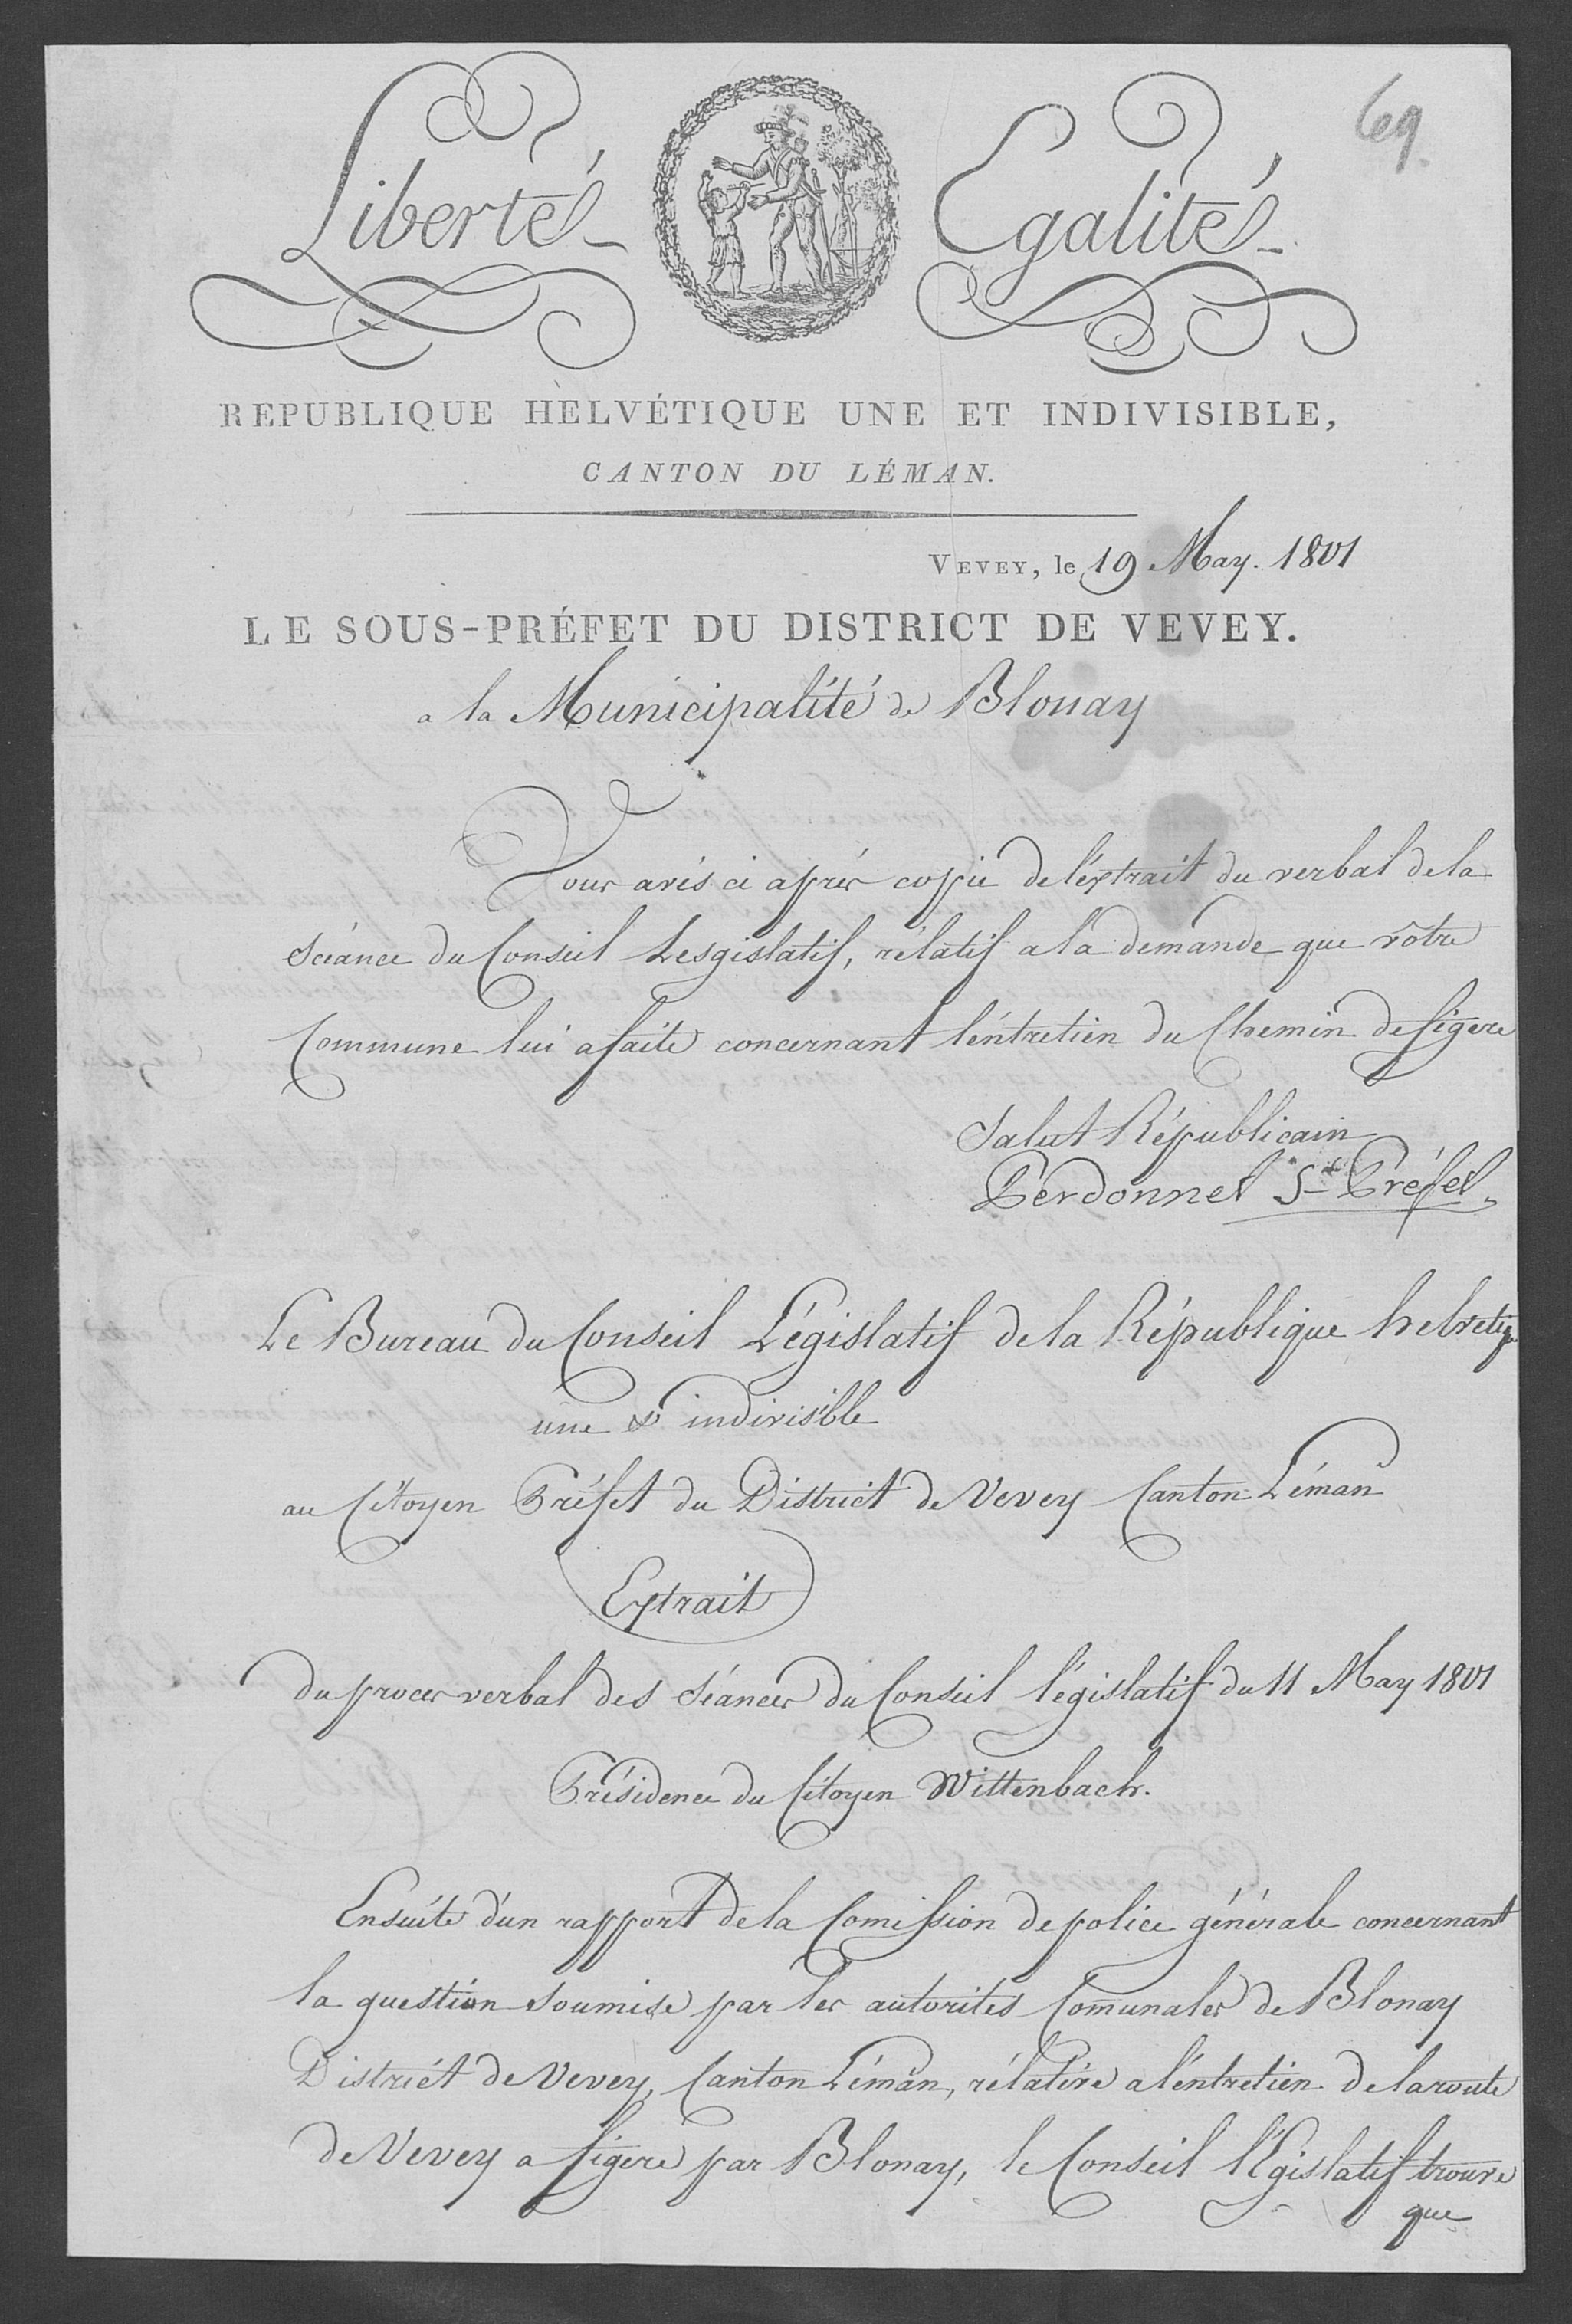 69.
Liberté Egalité
REPUBLIQUE HELVÉTIQUE UNE ET INDIVISIBLE,
CANTON DU LÉMAN.
VEVEY, le 19 May. 1801
LE SOUS-PRÉFET DU DISTRICT DE VEVEY.
a la Municipalité de Blonay
Vous avés ci aprés coppie de l'éxtrait du verbal de la
Scéance du Conseil Lesgislatif, rélatif a la demande que vôtre
Commune lui a faite concernant l'éntretien du Chemin de figere
Salut Républicain
Perdonnet S.t Préfet
Le Bureau du Conseil Législatif de la République helvetiq
une & indivisible
au Citoyen Préfet du District de Vevey Canton Léman
Extrait
du proces verbal des Séances du Conseil législatif du 11 May 1801
Présidence du Citoyen Wittenbach.
Ensuite d'un rapport de la Comission de police générale concernant
la question soumise par les autorités Comunales de Blonay
District de Vevey, Canton Léman, rélative a l'éntretien de la route
de Vevey a figere par Blonay, le Conseil législatif trouve
que